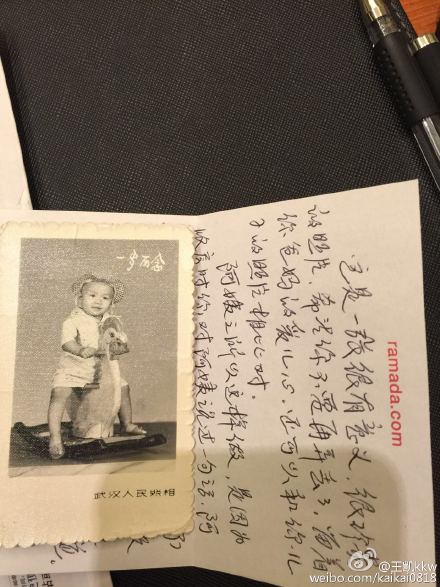 ramada.com
这是一张很有意义、很
的照片,希望你不要再弄丢了,留着
你爸妈的爱儿心.还可以和你儿
子的照片相比对.
阿姨之所以这样做,是因为
收衣时你对阿姨说过一句话,阿
一岁留念
武汉人民照相
@王凯kkw
weibo.com/kaikai0818